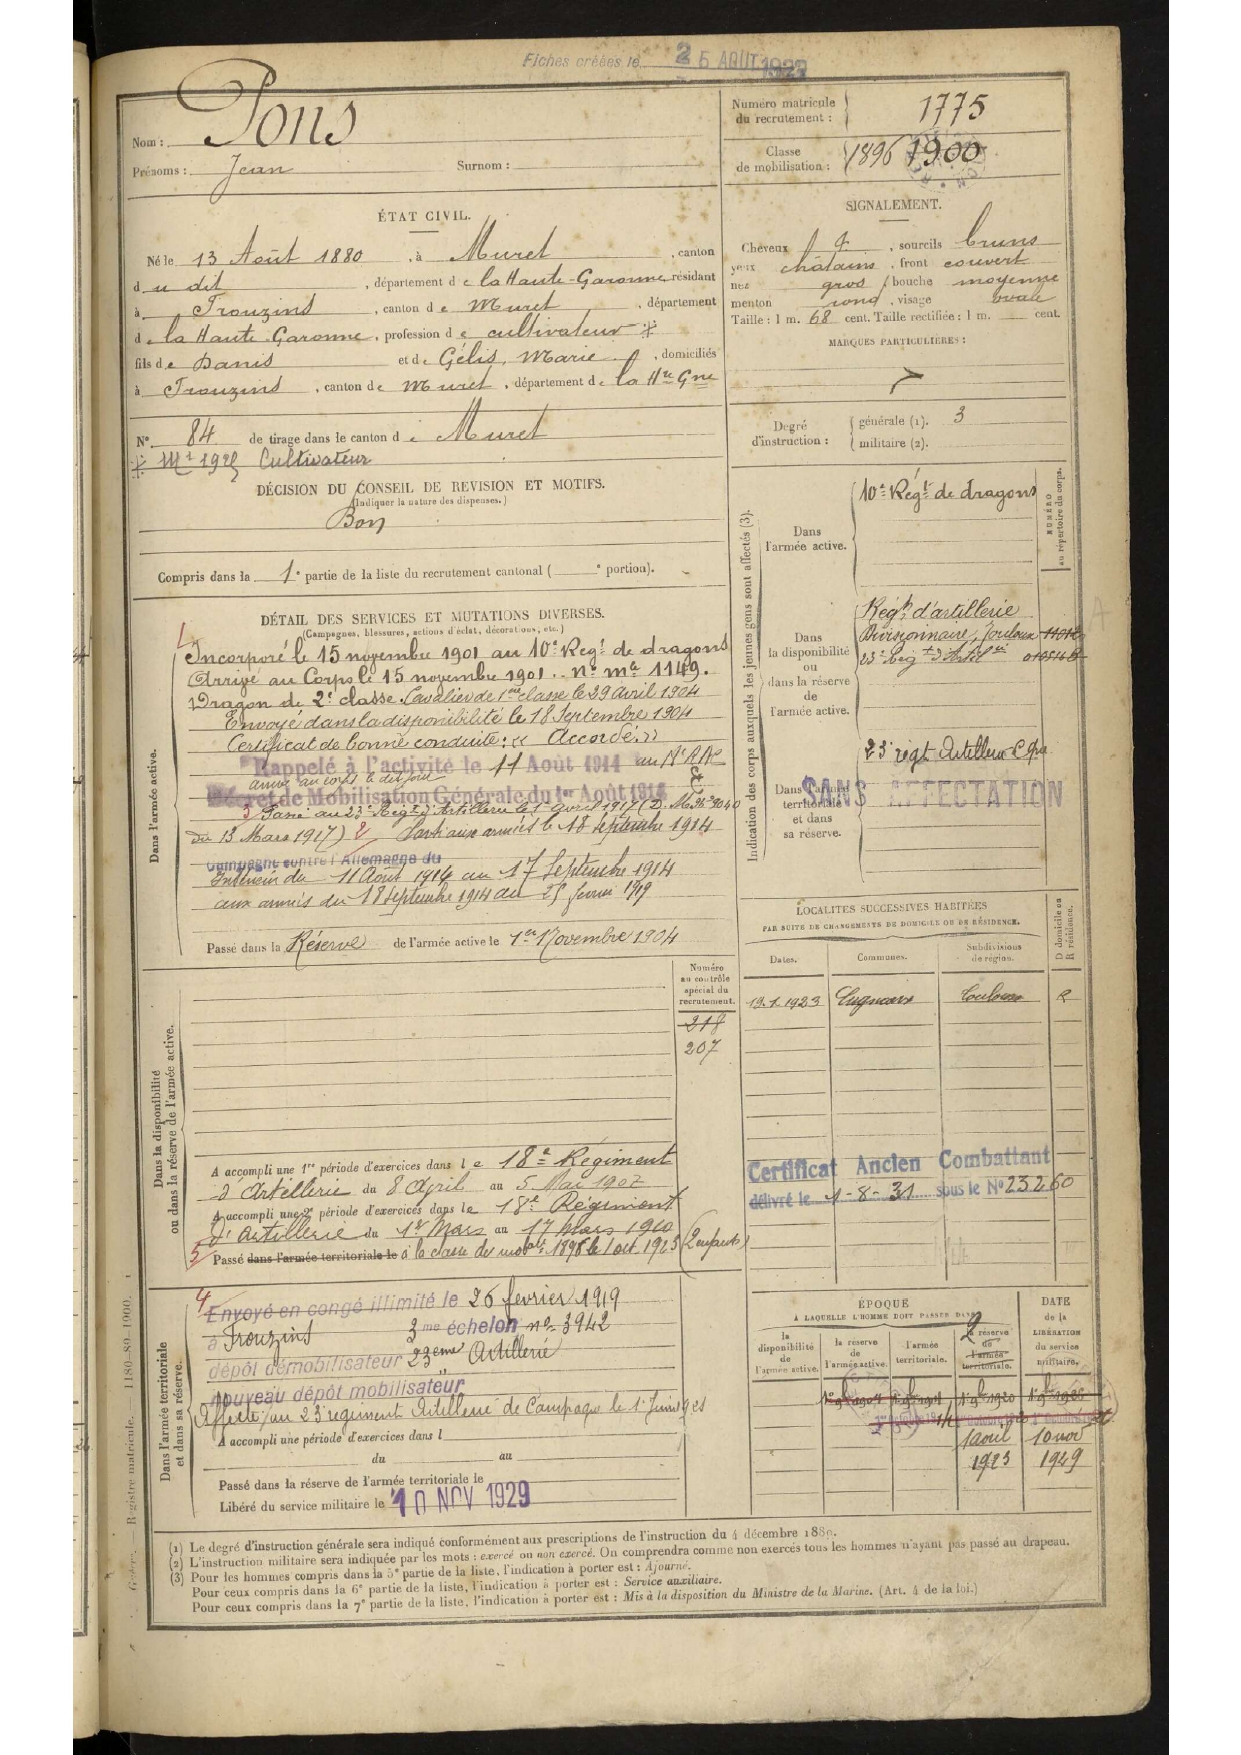 Fiches créées le 25 AOUT
Nom : Pons
Prénoms : Jean Surnom :
Numéro matricule du recrutement : 1775
Classe de mobilisation : 1896 1900
ÉTAT CIVIL.
Né le 13 Août 1880, à Muret, canton
du dit, département de la Haute-Garonne, résidant
à Frouzins, canton de Muret, département
de la Haute-Garonne, profession de cultivateur
fils de Danis et de Gélis, Marie, domiciliés
à Frouzins, canton de Muret, département de la Hte Gne
N° 84 de tirage dans le canton de Muret
Cultivateur
DÉCISION DU CONSEIL DE REVISION ET MOTIFS.
(Indiquer la nature des dispenses.)
Bon
Compris dans la 1e partie de la liste du recrutement cantonal ( e portion).
SIGNALEMENT.
Cheveux, sourcils bruns
yeux châtains, front couvert
nez gros, bouche moyenne
menton rond, visage ovale
Taille : 1 m. 68 cent. Taille rectifiée : 1 m. cent.
MARQUES PARTICULIÈRES :
Degré d'instruction :
générale (1). 3
militaire (2).
DÉTAIL DES SERVICES ET MUTATIONS DIVERSES.
(Campagnes, blessures, actions d'éclat, décorations, etc.)
Dans l'armée active.
Incorporé le 15 novembre 1901 au 10e Régt de dragons
Arrivé au Corps le 15 novembre 1901. no mle 1149.
Dragon de 2e classe. Cavalier de 1ère classe le 29 avril 1904
Envoyé dans la disponibilité le 18 Septembre 1904
Certificat de bonne conduite : « Accordé. »
Rappelé à l'activité le 11 Août 1914
arrivé au corps le dit jour
Décret de Mobilisation Générale du 1er Août 1914
3 Passé au 23e Régt d'Artillerie le 1er avril 1917
du 13 Mars 1917) 2 Parti aux armées le 18 septembre 1914
Campagne contre l'Allemagne du
Intérieur du 11 Août 1914 au 17 Septembre 1914
aux armées du 18 Septembre 1914 au 25 février 1919
Passé dans la Réserve de l'armée active le 1er Novembre 1904
Indication des corps auxquels les jeunes gens sont affectés (3).
NUMÉRO au répertoire du corps.
Dans l'armée active.
10e Régt de dragons
Dans la disponibilité ou dans la réserve de l'armée active.
Régt d'artillerie
Divisionnaire, Toulouse
23e Reg t d'Art
Dans l'armée territoriale et dans sa réserve.
23e régt Artillerie Cgne
SANS AFFECTATION
LOCALITÉS SUCCESSIVES HABITÉES
PAR SUITE DE CHANGEMENTS DE DOMICILE OU DE RÉSIDENCE.
Dates. Communes. Subdivisions de région. D domicile ou R résidence.
19.1.1923 Cugnaux Toulouse R
Dans la disponibilité ou dans la réserve de l'armée active.
Numéro au contrôle spécial du recrutement.
218
207
A accompli une 1re période d'exercices dans le 18e Régiment
d'Artillerie du 8 Avril au 5 Mai 1907
A accompli une 2e période d'exercices dans le 18e Régiment
d'Artillerie du 1er Mars au 17 Mars 1910
5 Passé dans l'armée territoriale le à la classe de mobon 1898 le 1 oct. 1923 (2 enfants)
Certificat Ancien Combattant
délivré le 1-8-31 sous le N° 23260
Dans l'armée territoriale et dans sa réserve.
4 Envoyé en congé illimité le 26 février 1919
à Frouzins 3me échelon no 3942
dépôt démobilisateur 23ème Artillerie
nouveau dépôt mobilisateur "
Affecté au 23 régiment Artillerie de Campagne le 1 Juin
A accompli une période d'exercices dans l
du au
Passé dans la réserve de l'armée territoriale le
Libéré du service militaire le 10 NOV 1929
ÉPOQUE
A LAQUELLE L'HOMME DOIT PASSER DANS
la disponibilité de l'armée active. la réserve de l'armée active. l'armée territoriale. la réserve de l'armée territoriale.
DATE de la LIBÉRATION du service militaire.
1er 9bre 1904
1 avril 1923
10 nov 1929
(1) Le degré d'instruction générale sera indiqué conformément aux prescriptions de l'instruction du 4 décembre 1889.
(2) L'instruction militaire sera indiquée par les mots : exercé ou non exercé. On comprendra comme non exercés tous les hommes n'ayant pas passé au drapeau.
(3) Pour les hommes compris dans la 5e partie de la liste, l'indication à porter est : Ajourné.
Pour ceux compris dans la 6e partie de la liste, l'indication à porter est : Service auxiliaire.
Pour ceux compris dans la 7e partie de la liste, l'indication à porter est : Mis à la disposition du Ministre de la Marine. (Art. 4 de la loi.)
Registre matricule. 1180-89-1900.